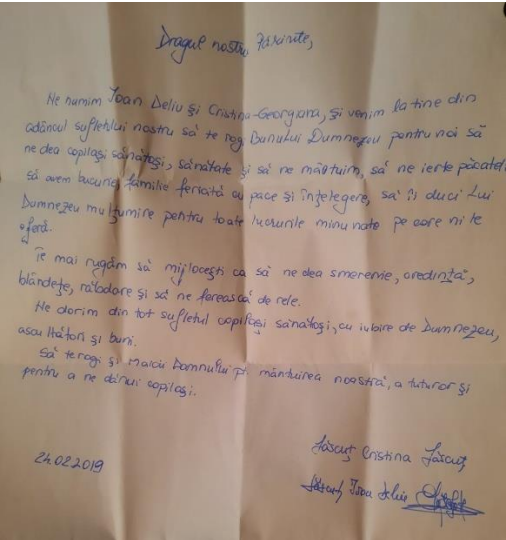 Dragul nostru Părinte,
Ne numim Ioan Deliu și Cristina-Georgiana, și venim la tine din
adâncul sufletului nostru să te rogi Bunului Dumnezeu pentru noi să
ne dea copilași sănătoși, sănătate și să ne mântuim, să ne ierte păcatele
să avem bucurie, familie fericită cu pace și înțelegere, să îi duci lui
Dumnezeu mulțumire pentru toate lucrurile minunate pe care ni le
oferă.
Te mai rugăm să mijlocești ca să ne dea smerenie, credință,
blândețe, răbdare și să ne ferească de rele.
Ne dorim din tot sufletul copilași sănătoși, cu iubire de Dumnezeu,
ascultători și buni.
Să te rogi și Maicii Domnului pt. mântuirea noastră, a tuturor și
pentru a ne dărui copilași.
24.02.2019
Cristina